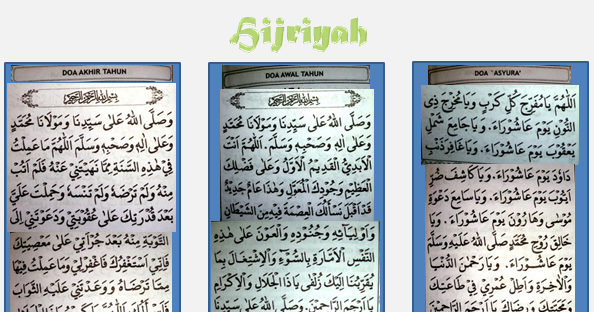 Hijriyah
DOA AKHIR TAHUN
بِسْمِ اللَّهِ الرَّحْمَنِ الرَّحِيمِ
وَصَلَّى اللهُ عَلَى سَيِّدِنَا وَمَوْلَانَا مُحَمَّدٍ
وَعَلَى آلِهِ وَصَحْبِهِ وَسَلَّمَ اَللّٰهُمَّ مَا عَمِلْتُ
فِي هٰذِهِ السَّنَةِ مِمَّا نَهَيْتَنِي عَنْهُ فَلَمْ أَتُبْ
مِنْهُ وَلَمْ تَرْضَهُ وَلَمْ تَنْسَهُ وَحَلِمْتَ عَلَيَّ
بَعْدَ قُدْرَتِكَ عَلَى عُقُوبَتِي وَدَعَوْتَنِي إِلَى
التَّوْبَةِ مِنْهُ بَعْدَ جُرْأَتِي عَلَى مَعْصِيَتِكَ
فَإِنِّي أَسْتَغْفِرُكَ فَاغْفِرْلِي وَمَا عَمِلْتُ فِيهَا
مِمَّا تَرْضَاهُ وَوَعَدْتَنِي عَلَيْهِ الثَّوَابَ
DOA AWAL TAHUN
بِسْمِ اللَّهِ الرَّحْمَنِ الرَّحِيمِ
وَصَلَّى اللهُ عَلَى سَيِّدِنَا وَمَوْلَانَا مُحَمَّدٍ
وَعَلَى آلِهِ وَصَحْبِهِ وَسَلَّمَ. اَللّٰهُمَّ أَنْتَ
الْأَبَدِيُّ الْقَدِيمُ الْأَوَّلُ وَعَلَى فَضْلِكَ
الْعَظِيمِ وَجُودِكَ الْمُعَوَّلِ وَهٰذَا عَامٌ جَدِيدٌ
قَدْ أَقْبَلَ نَسْأَلُكَ الْعِصْمَةَ فِيهِ مِنَ الشَّيْطَانِ
وَأَوْلِيَائِهِ وَجُنُودِهِ وَالْعَوْنَ عَلَى هٰذِهِ
النَّفْسِ الْأَمَّارَةِ بِالسُّوْءِ وَالْاِشْتِغَالَ بِمَا
يُقَرِّبُنَا إِلَيْكَ زُلْفَى يَا ذَا الْجَلَالِ وَالْإِكْرَامِ
يَا أَرْحَمَ الرَّاحِمِينَ. وَصَلَّى اللهُ عَلَى سَيِّدِنَا
DOA `ASYURA'
اَللّٰهُمَّ يَا مُفَرِّجَ كُلِّ كَرْبٍ وَيَا مُخْرِجَ ذِي
النُّونِ يَوْمَ عَاشُورَاءَ. وَيَا جَامِعَ شَمْلِ
يَعْقُوبَ يَوْمَ عَاشُورَاءَ. وَيَا غَافِرَ ذَنْبِ
دَاوُدَ يَوْمَ عَاشُورَاءَ. وَيَا كَاشِفَ ضُرِّ
أَيُّوبَ يَوْمَ عَاشُورَاءَ. وَيَا سَامِعَ دَعْوَةِ
مُوسَى وَهَارُونَ يَوْمَ عَاشُورَاءَ. وَيَا
خَالِقَ رُوْحِ مُحَمَّدٍ صَلَّى اللهُ عَلَيْهِ وَسَلَّمَ
يَوْمَ عَاشُورَاءَ. وَيَا رَحْمٰنَ الدُّنْيَا
وَالْآخِرَةِ وَأَطِلْ عُمْرِي فِي طَاعَتِكَ
وَمَحَبَّتِكَ وَرِضَاكَ يَا أَرْحَمَ الرَّاحِمِينَ